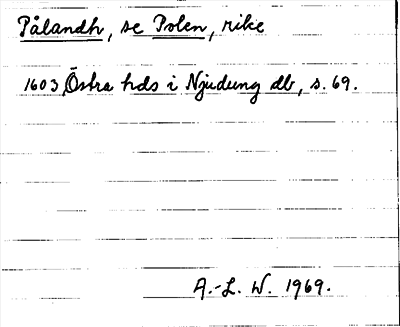 Pålandh, se Polen, rike
1603 Östra hds i Njudung db, s. 69.
A.-L. W. 1969.